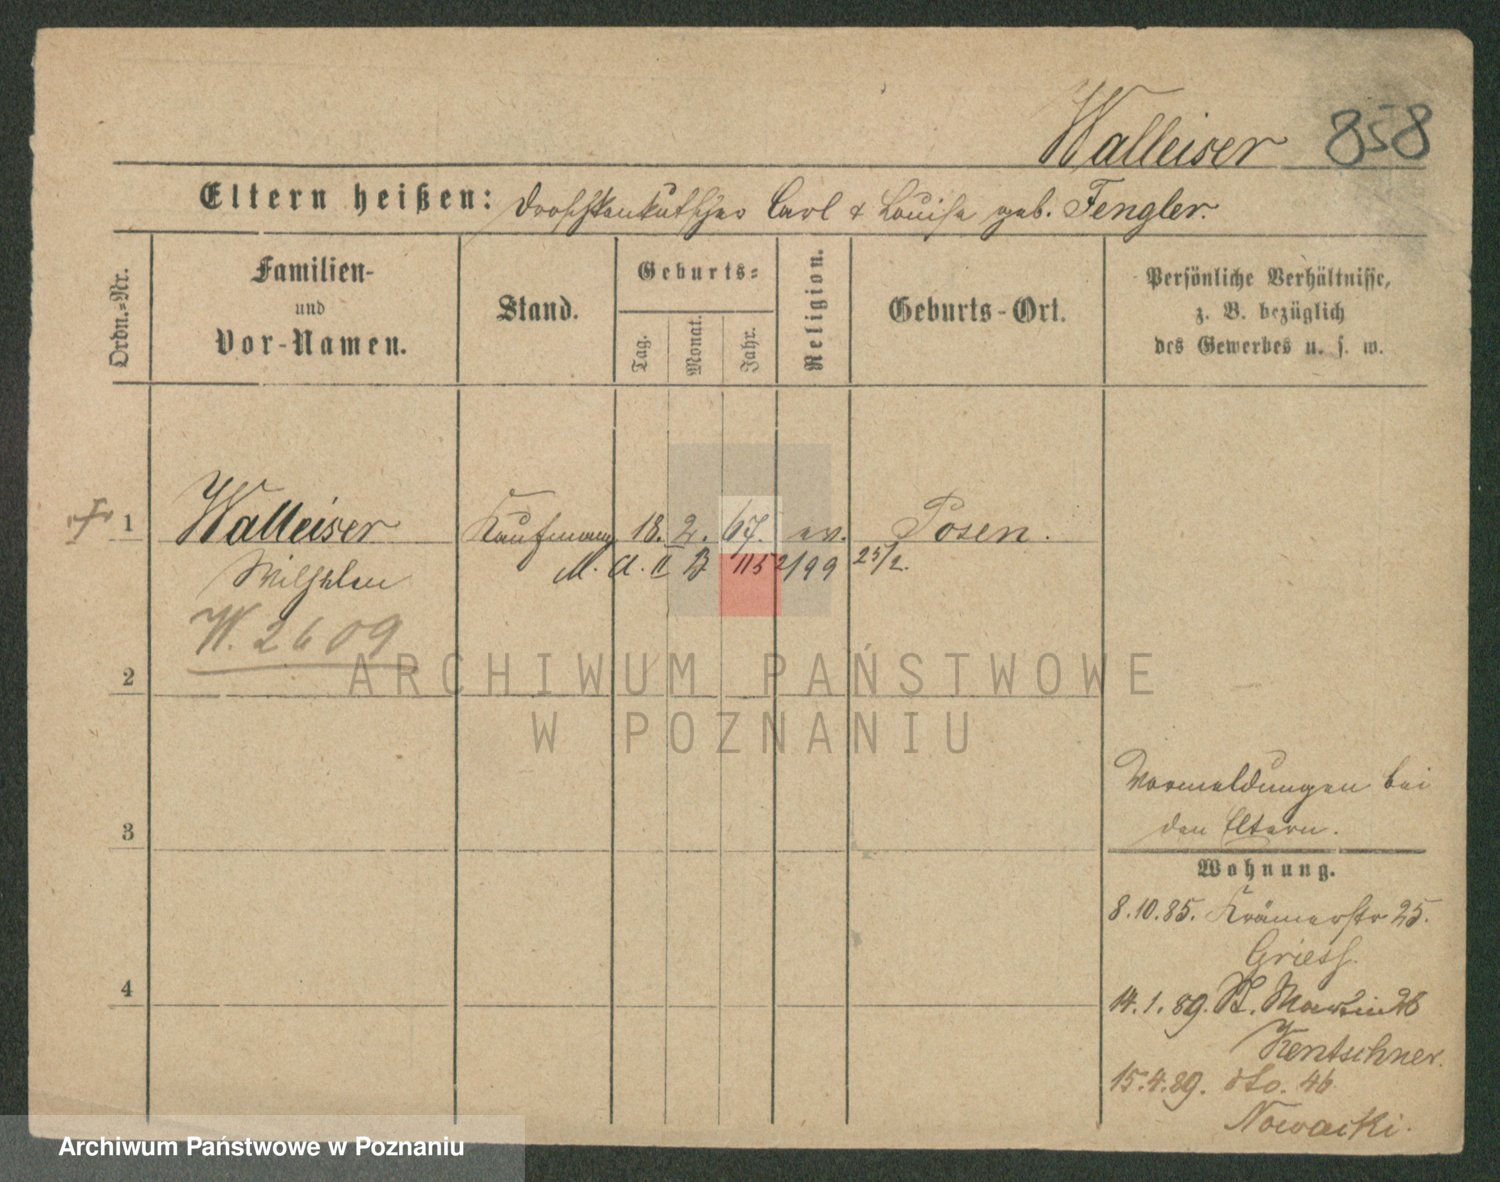 Walleiser 858
Eltern heißen: Droschkenkutscher Carl & Louise geb. Fengler.
Ordn.-Nr.
Familien-
und
Vor-Namen.
Stand.
Geburts-
Tag.
Monat.
Jahr.
Religion.
Geburts-Ort.
Persönliche Verhältnisse,
z. B. bezüglich
des Gewerbes u. s. w.
1 Walleiser Kaufmann 18. 2. 67. ev. Posen.
Wilhelm M. A. II B 1152/99 25/2.
W. 2609
2
3
4
Vormeldungen bei
den Eltern.
Wohnung.
8.10.85. Krämerstr 25.
Griess.
14.1.89. St. Martin 26
Kentschner.
15.4.89. dto. 46
Nowacki.
ARCHIWUM PAŃSTWOWE
W POZNANIU
Archiwum Państwowe w Poznaniu